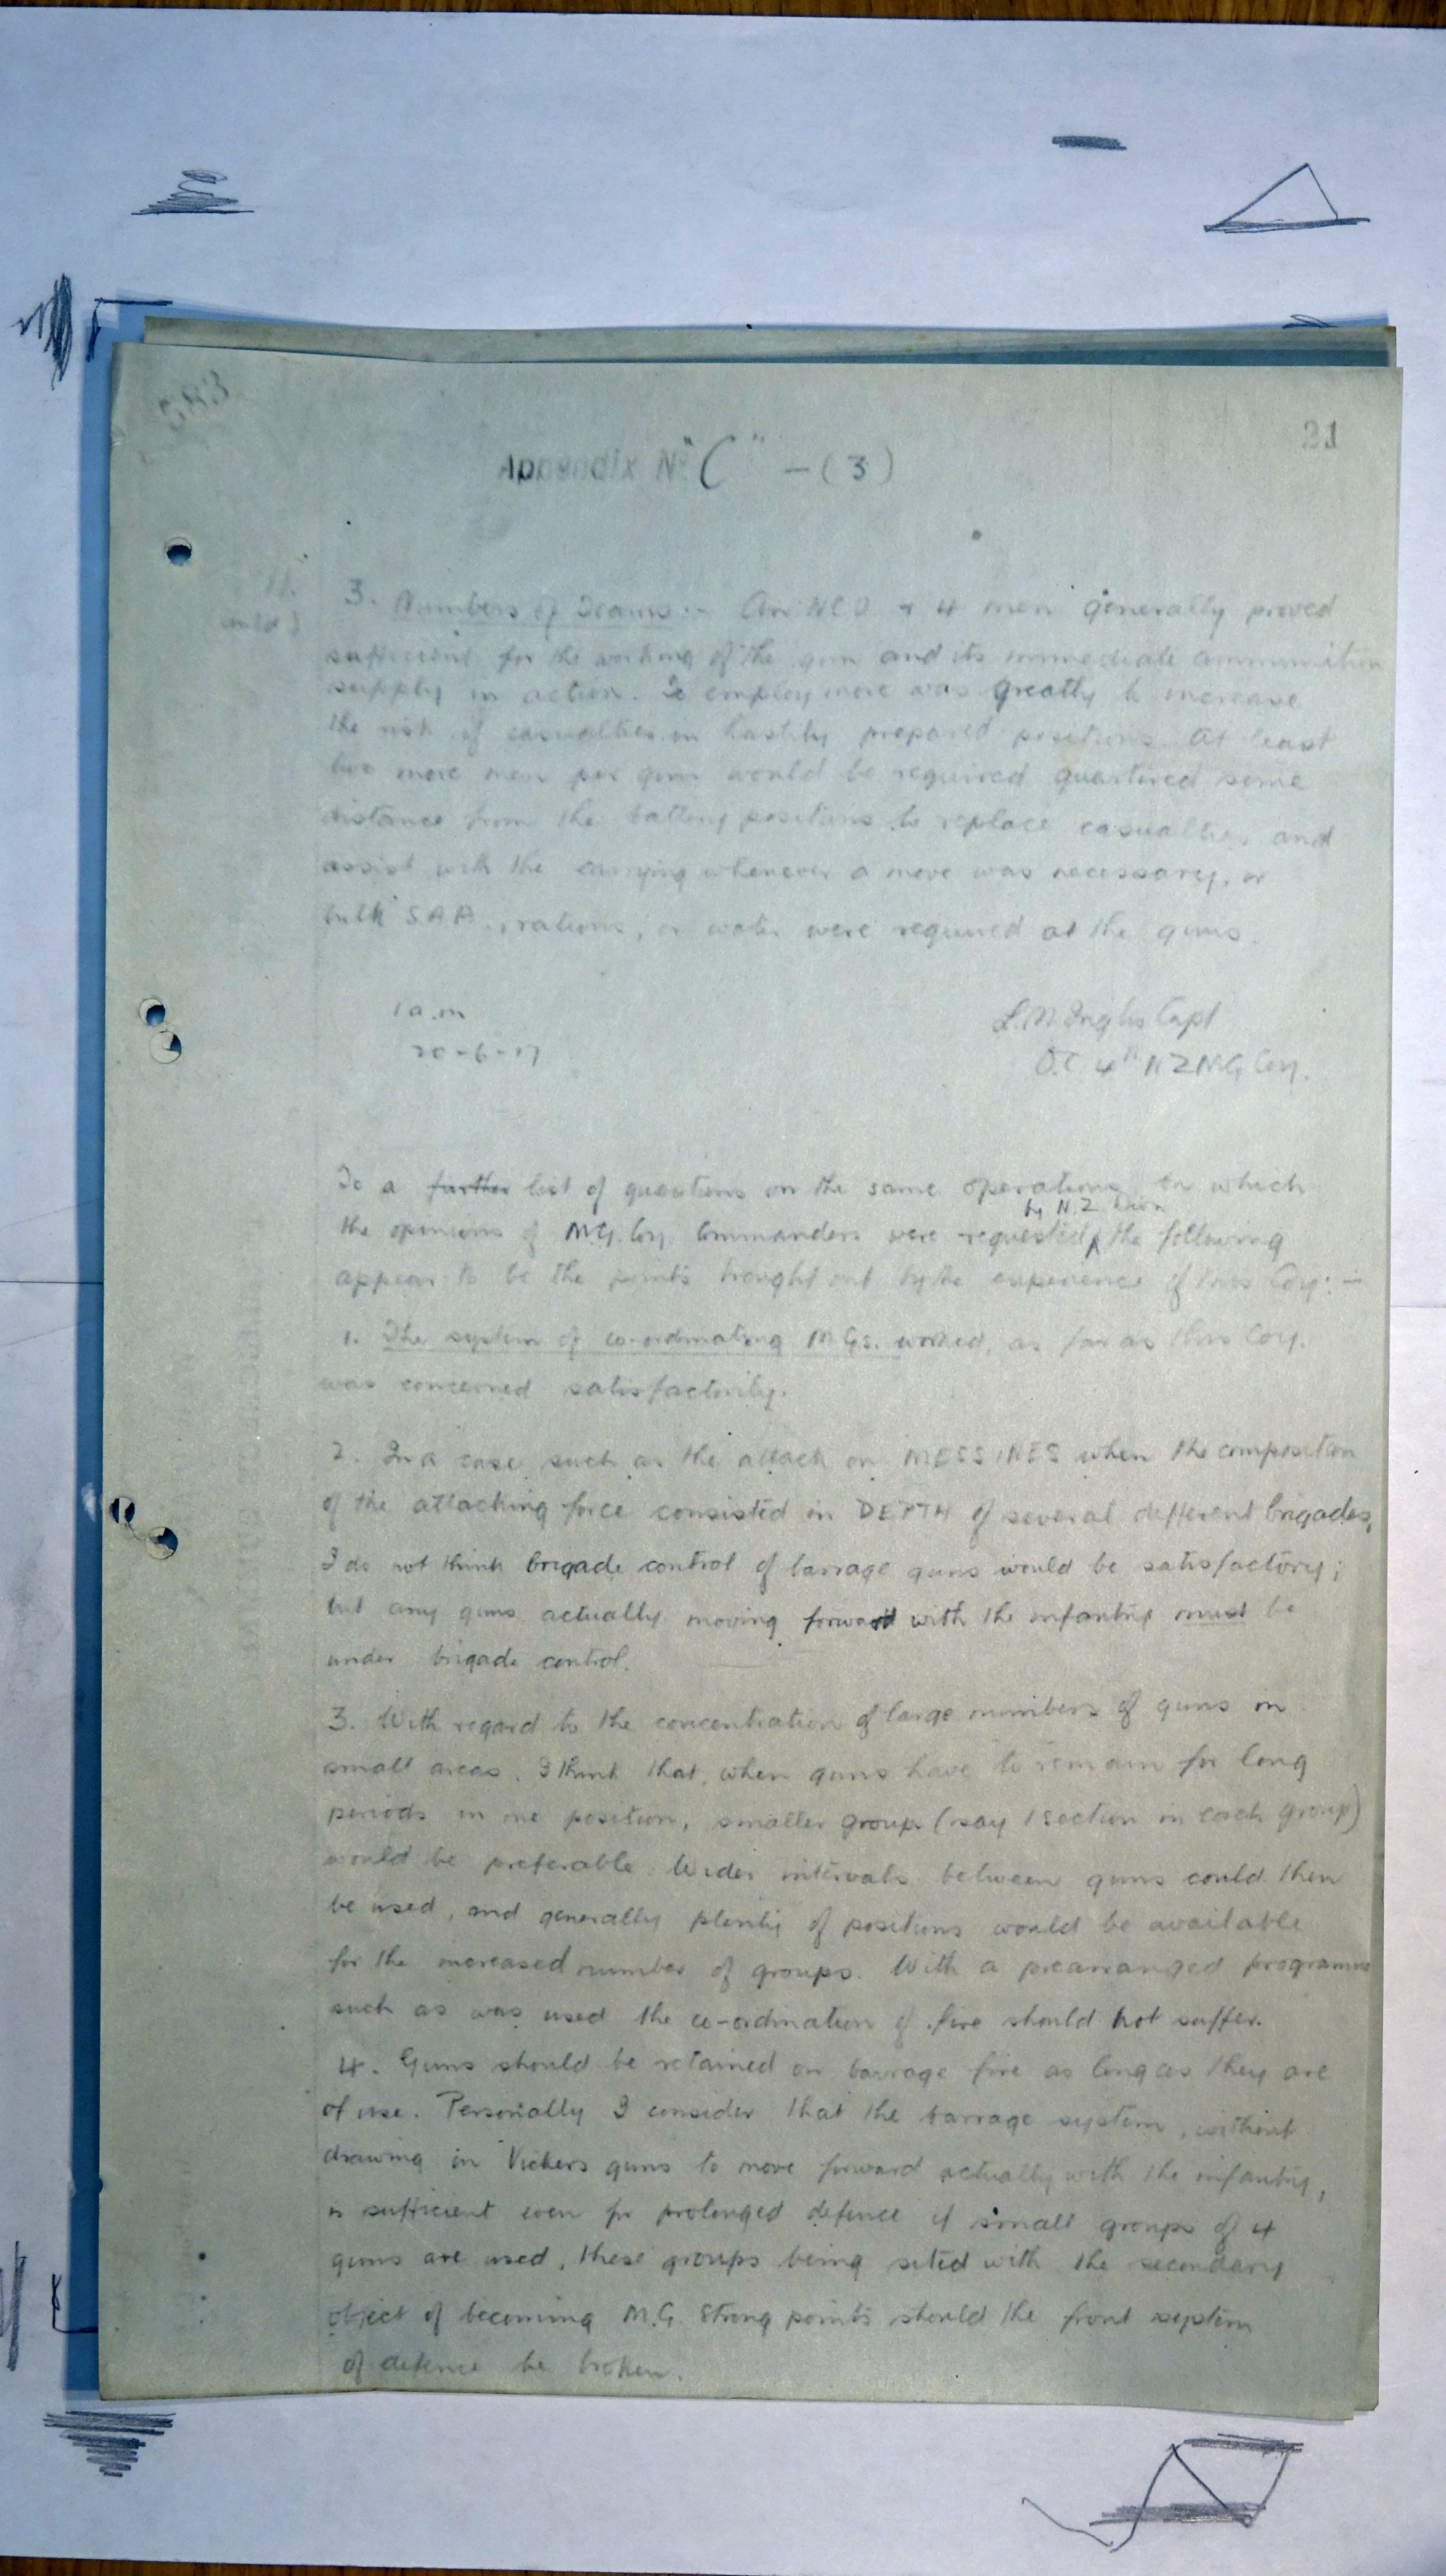 21
Appendix No "C" - (3)
3. Numbers of Teams:- An NCO & 4 men generally proved
sufficient for the working of the gun and its immediate ammunition
supply in action. To employ more was greatly to increase
the risk of casualties in hastily prepared positions. At least
two more men per gun would be required quartered some
distance from the battery positions to replace casualties and
assist with the carrying whenever a move was necessary, or
bulk S.A.A., rations, or water were required at the guns.
1 a.m
20-6-17
L.M. Inglis Capt
O.C. 4th NZMG Coy.
To a further list of questions on the same operations on which
by N.Z. Divn
the opinions of M.G. Coy. Commanders were requested, the following
appear to be the points brought out by the experience of this Coy:-
1. The system of co-ordinating M.Gs. worked, as far as this Coy.
was concerned satisfactorily.
2. In a case such as the attack on MESSINES when the composition
of the attacking force consisted in DEPTH of several different brigades,
I do not think brigade control of barrage guns would be satisfactory;
but any guns actually moving forward with the infantry must be
under brigade control.
3. With regard to the concentration of large numbers of guns in
small areas. I think that, when guns have to remain for long
periods in one position, smaller groups (say 1 section in each group)
would be preferable. Wider intervals between guns could then
be used, and generally plenty of positions would be available
for the increased number of groups. With a prearranged programme
such as was used the co-ordination of fire should not suffer.
4. Guns should be retained on barrage fire as long as they are
of use. Personally I consider that the barrage system, without
drawing in Vickers guns to move forward actually with the infantry,
is sufficient even for prolonged defence if small groups of 4
guns are used, these groups being sited with the secondary
object of becoming M.G. strong points should the front system
of defence be broken.